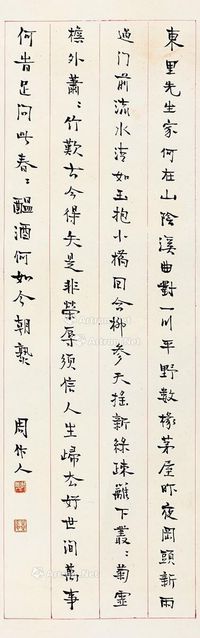 東里先生家何在山陰溪曲對一川平野數椽茅屋昨夜岡頭新雨
過門前流水清如玉抱小橋回合柳參天搖新綠疎籬下叢〻菊虛
檐外蕭〻竹歎古今得失是非榮辱須信人生歸去好世間萬事
何旹足問此春〻醞酒何如今朝熟
周作人